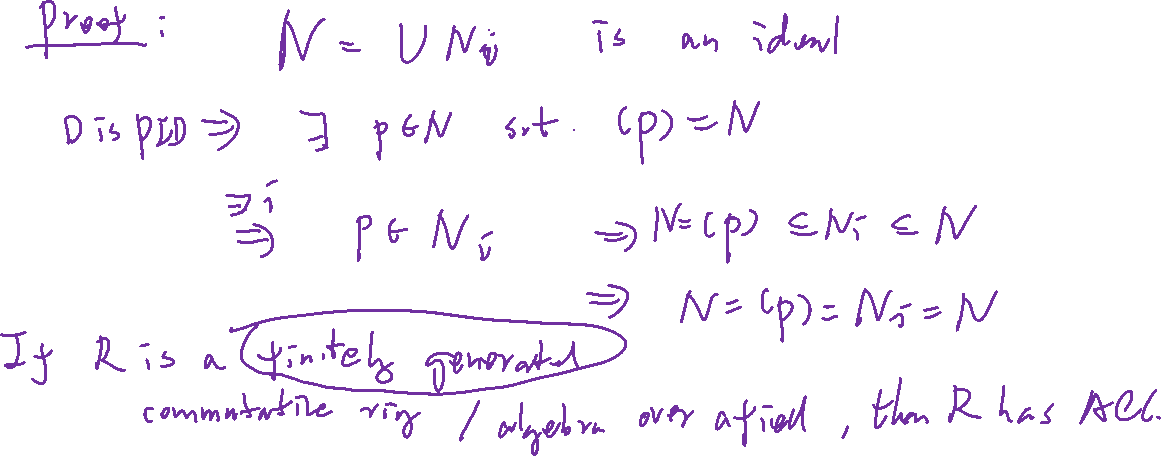 Proof: N = ∪ Nᵢ is an ideal
D is PID ⇒ ∃ p∈N s.t. (p)=N
∃i ⇒ p ∈ Nᵢ ⇒ N=(p) ⊆ Nᵢ ⊆ N
⇒ N=(p)=Nᵢ=N
If R is a finitely generated
commutative ring / algebra over a field, then R has ACC.